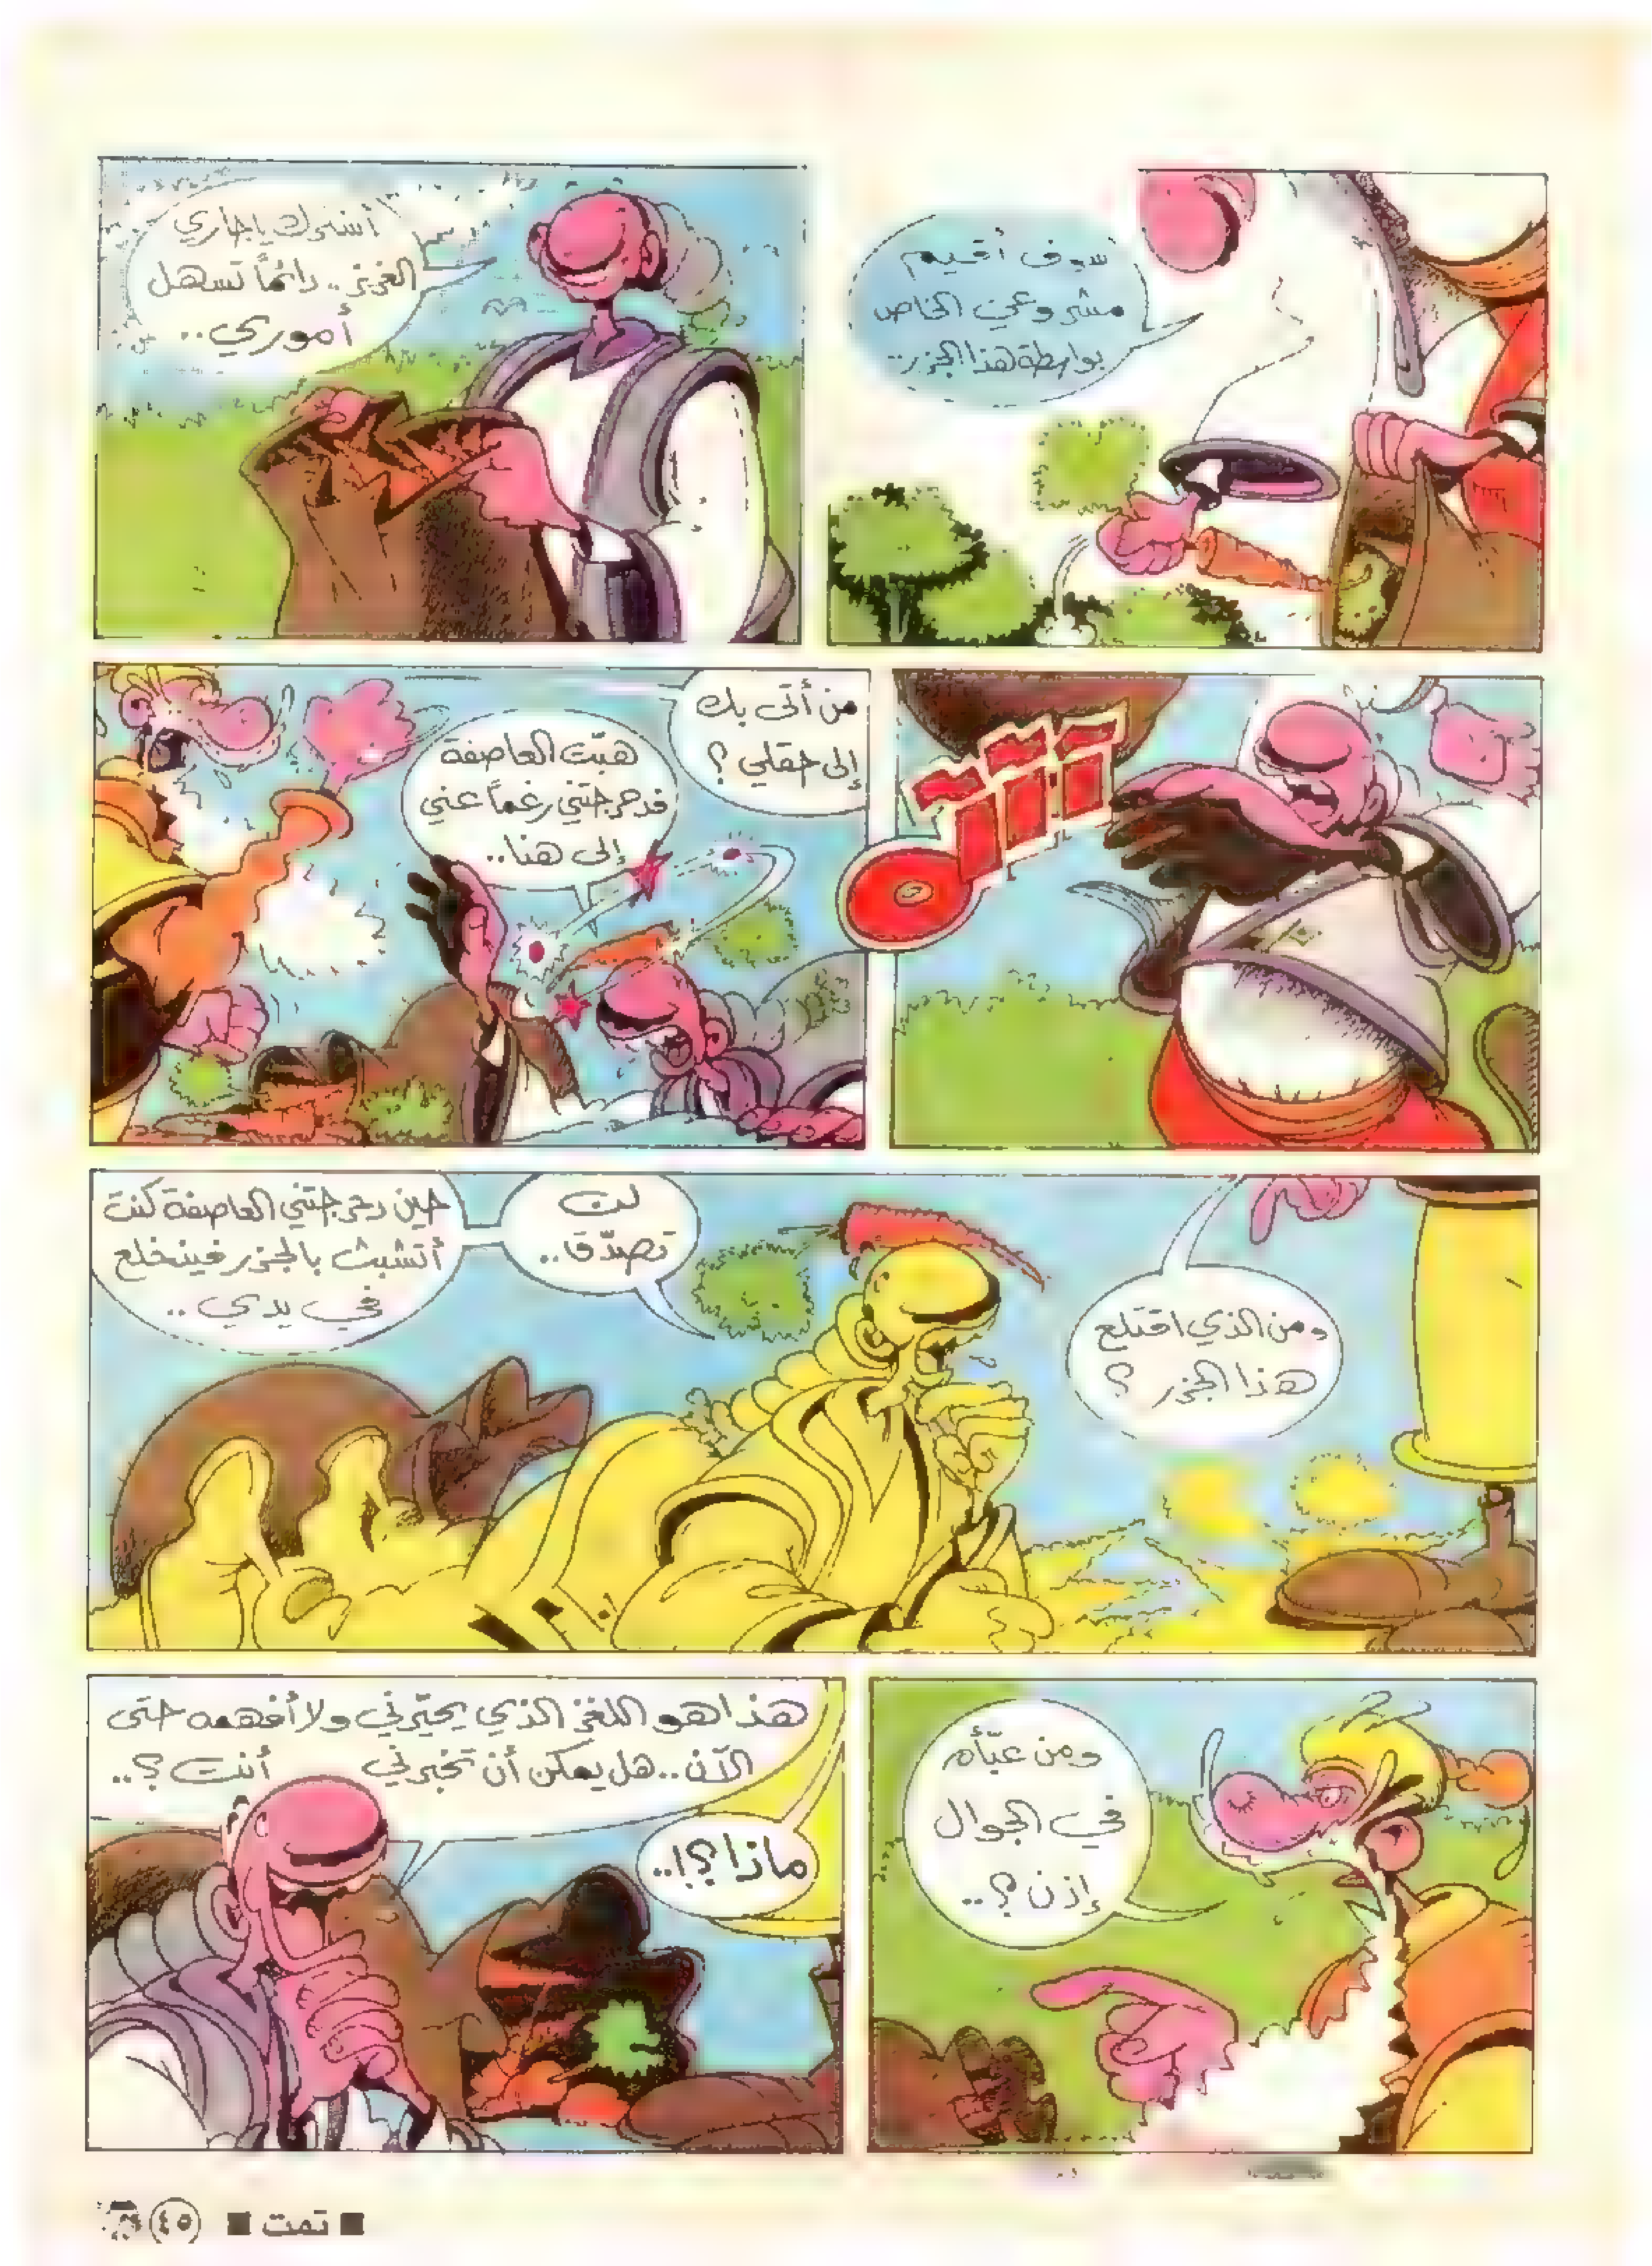 سوف أقيم
مشروعي الخاص
بواسطة هذا الجزر..
أشكرك يا جاري
العزيز.. دائماً تسهل
أموري..
آآآه
من أتى بك
إلى حقلي؟
هبّت العاصفة
فدحرجتني رغماً عني
إلى هنا..
ومن الذي اقتلع
هذا الجزر؟
لن
تصدّق..
حين دحرجتني العاصفة كنت
أتشبث بالجزر فينخلع
في يدي..
ومن عبّأه
في الجوال
إذن؟..
ماذا؟!..
هذا هو اللغز الذي يحيّرني ولا أفهمه حتى
الآن.. هل يمكن أن تخبرني أنت؟..
■ تمت ■
٤٥